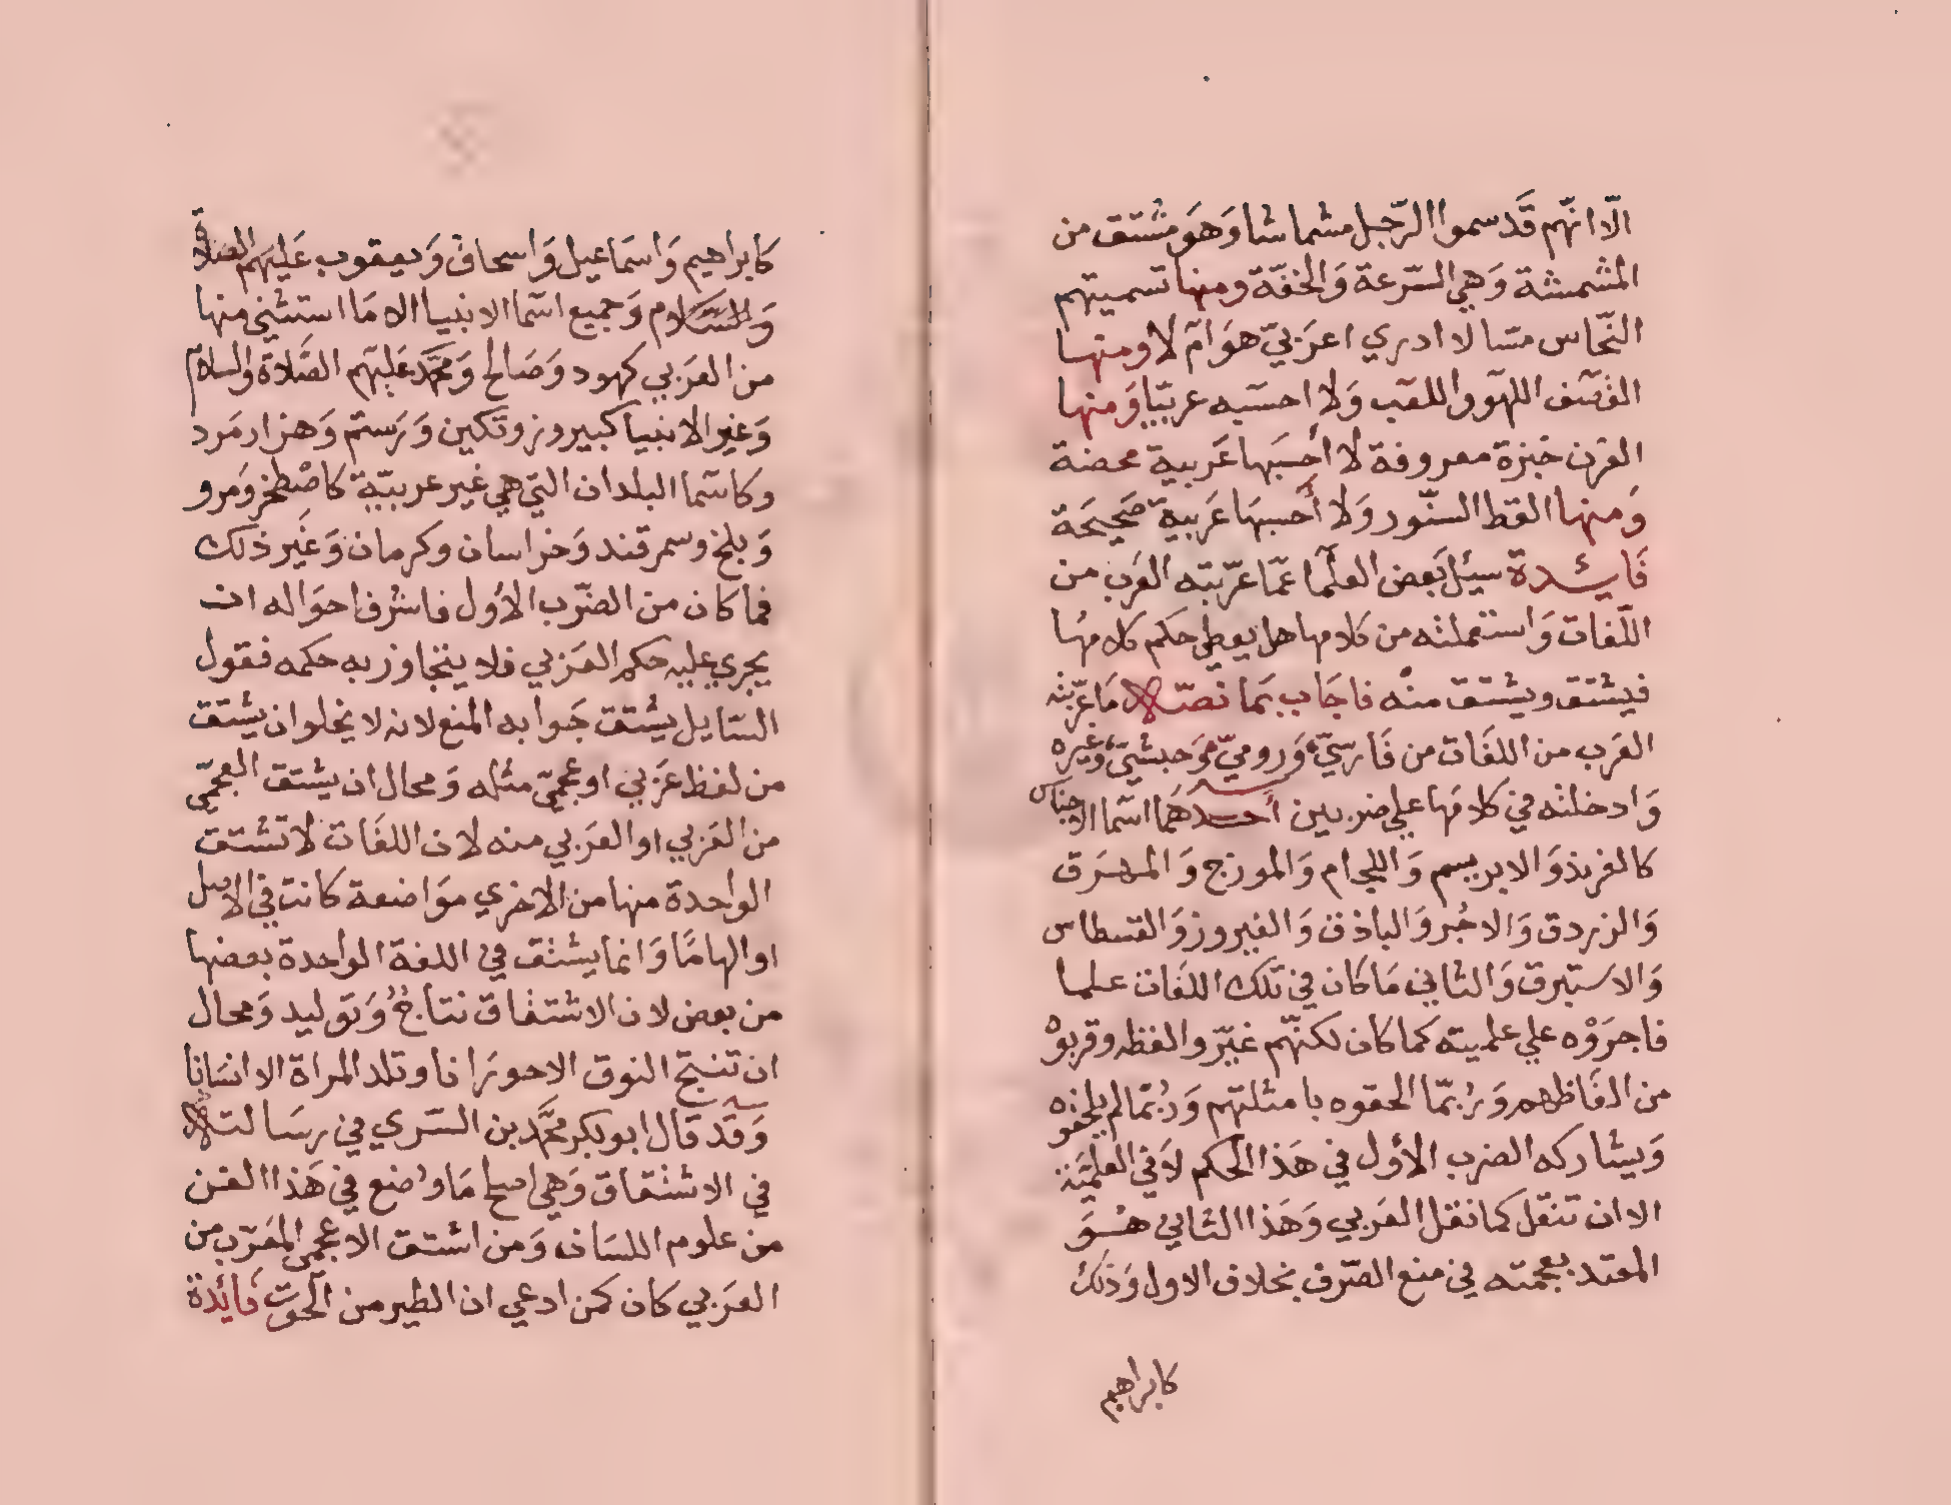 الّا انّهم قَد سموا الرّجل مشماشا وَهوَ مشتق من
المشمشة وَهي السّرعة وَالخفّة ومنها تسميتهم
النّحاس مسّا لا ادري اعرَبيّ هوَ امْ لا ومنها
القصَف اللهوَ واللعَب وَلا احسَبه عربيّا وَمنها
الفرن خبزة معروفة لا أحسَبها عَربية محضة
وَمنها القط السنّور وَلا أحسبهَا عَربية صَحيحَة
فَائدة سئل بَعض العلمَا عمّا عرّبته العَرب من
اللّغات وَاستعملته من كلامها هل يعطي حكم كلامهَا
فيشتق ويشتق منْه فاجَاب بمَا نصّه مَا عرّبته
العَرب من اللغَات من فَارسيّ وَروميّ وَحبشيّ وَغيره
وَادخلته في كلامهَا علي ضربين أحدهَما اسمَا الاجناس
كالفرند وَالابريسم وَاللجام وَالموزج وَالمهرَق
وَالرزدق وَالاجُر وَالباذق وَالفيروز وَالقسطاس
وَالاستبرق وَالثاني مَا كان في تلك اللغَات علما
فاجرَوْه علي علميته كما كان لكنّهم غيّروا لفظه وقربوْه
من الفَاظهم وَرُبمّا الحقوه بامثلتهم وَرُبمّا لم يلحقوه
وَيشاركه الضرب الأول في هَذا الحكم لا في العلميَّة
الا ان تنقَل كما نقل العَربي وَهَذا الثاني هُوَ
المعتد بعجمته في منع الصّرف بخلاف الاول وَذلك
كابراهيم
كَابراهيم وَاسمَاعيل وَاسحاق وَيعقوب عَليهم الصلاة
وَالسّلام وَجميع اسمَا الانبيا الا مَا استثني منها
من العَربي كهود وَصَالح وَمحمَّد عَليهم الصَّلاة والسلام
وَغير الانبيا كبيروز وتكين وَرَستم وَهزارمَرد
وكاسمَا البلدان التي هي غير عربيّة كاصْطخر وَمرو
وَبلخ وسمرقند وَخراسان وكرمان وَغَير ذلك
فما كان من الضّرب الأول فاشرف احوَاله ان
يجري عليه حكم العَربي فلا يتجاوز به حكمه فقول
السّايل يشتق جَوابه المنع لانه لا يخلو ان يشتق
من لفظ عرَبي او عجميّ مثله وَمحال ان يشتق العجميّ
من العَربي او العَربي منه لان اللغَات لا تشتق
الواحدة منها من الاخري موَاضعة كانت في الاصل
او الهامًا وَانما يشتق في اللغة الواحدة بعضها
من بعض لان الاشتقاق نتاجٌ وَتوليد وَمحال
ان تنتج النوق الا حورَانا وتلد المراة الا انسَانا
وَقَد قال ابو بكر محمَّد بن السّري في رسَالته
في الاشتقاق وَهي اصح مَا وُضع في هَذا الفن
من علوم اللسَان وَمن اشتق الاعجمي المعَرّب من
العرَبي كان كمن ادعي ان الطير من الحوَت فَائدة